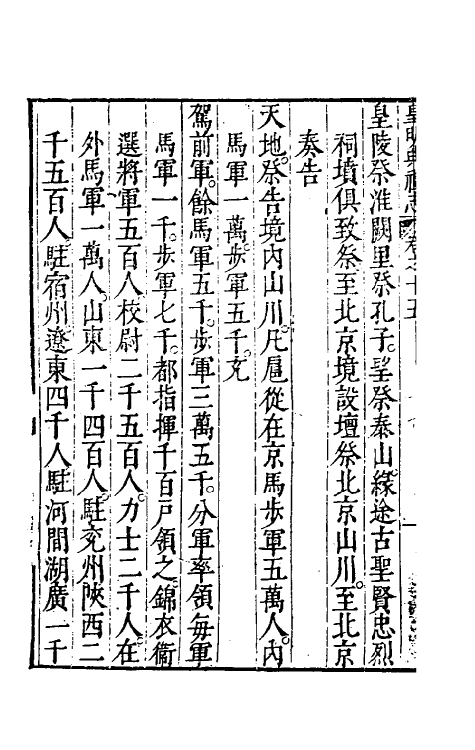 皇明典禮志卷之十五
皇陵祭淮闕里祭孔子望祭泰山緣途古聖賢忠烈
祠墳俱致祭至北京境設壇祭北京山川至北京
奏告
天地祭告境內山川凡扈從在京馬步軍五萬人內
馬軍一萬步軍五千充
駕前軍餘馬軍五千步軍三萬五千分軍率領每軍
馬軍一千步軍七千都指揮千百戶領之錦衣衞
選將軍五百人校尉二千五百人力士二千人在
外馬軍一萬人山東一千四百人駐兗州陝西二
千五百人駐宿州遼東四千人駐河間湖廣一千